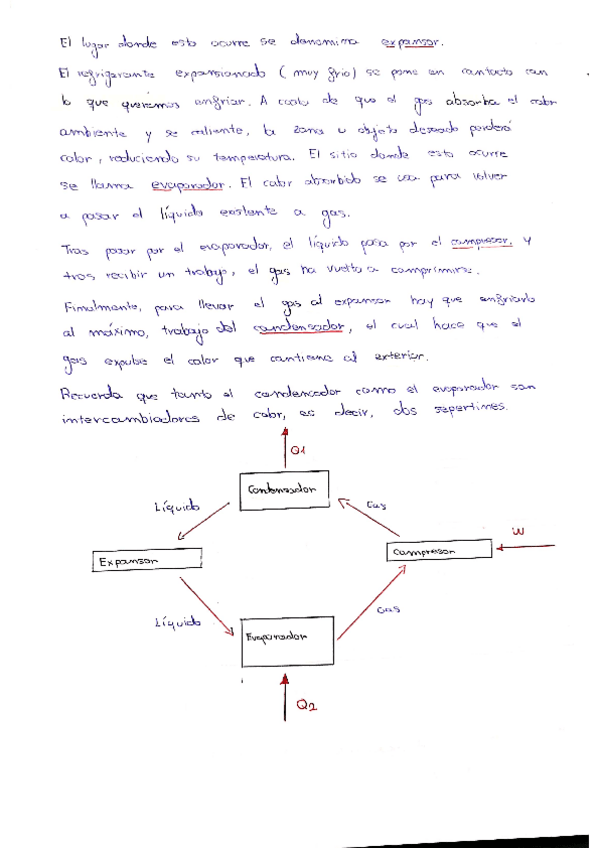 El lugar donde esto ocurre se denomina expansor.
El refrigerante expansionado (muy frío) se pone en contacto con
lo que queremos enfriar. A costa de que el gas absorba el calor
ambiente y se caliente, la zona u objeto deseado perderá
calor, reduciendo su temperatura. El sitio donde esto ocurre
se llama evaporador. El calor absorbido se usa para volver
a pasar el líquido existente a gas.
Tras pasar por el evaporador, el líquido pasa por el compresor, y
tras recibir un trabajo, el gas ha vuelto a comprimirse.
Finalmente, para llevar el gas al expansor hay que enfriarlo
al máximo, trabajo del condensador, el cual hace que el
gas expulse el calor que contiene al exterior.
Recuerda que tanto el condensador como el evaporador son
intercambiadores de calor, es decir, dos serpertines.
Q1
Condensador
Líquido
Gas
W
Expansor
Compresor
Líquido
Gas
Evaporador
Q2